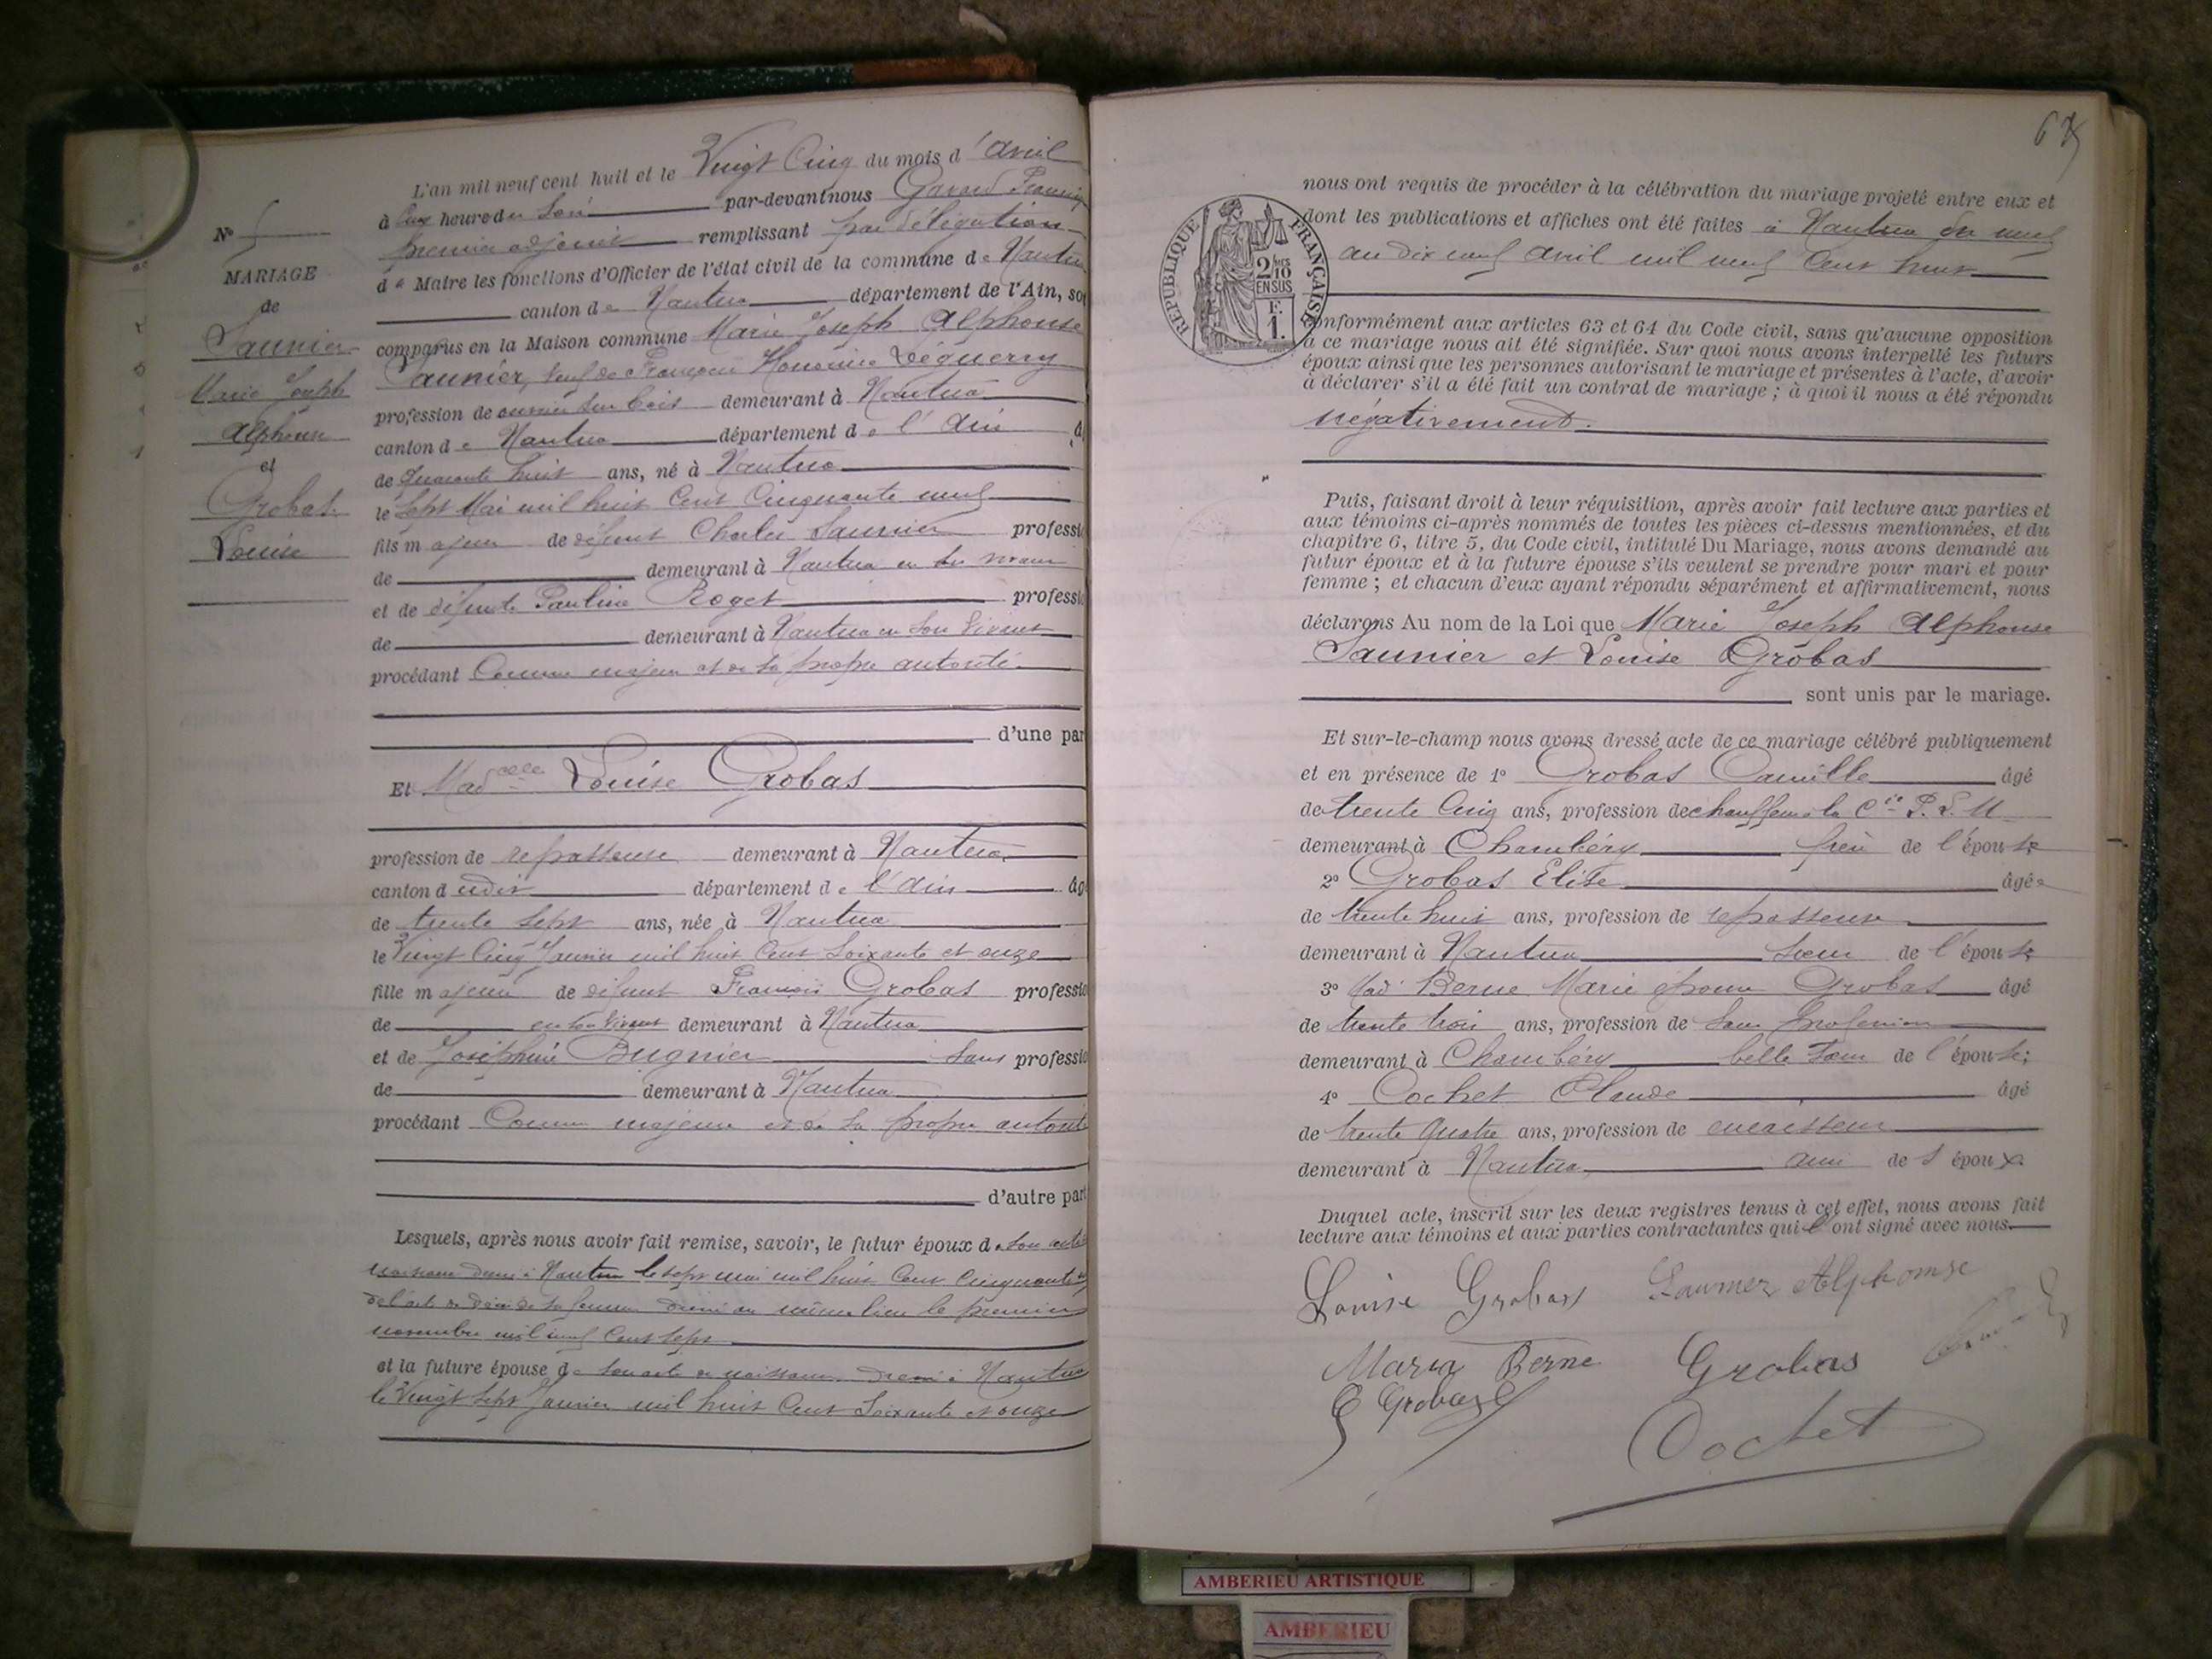 L'an mil neuf cent huit et le Vingt Cinq du mois d'avril
à heure du Soir par-devant nous Gavard
premier adjoint remplissant par délégation
de Maire les fonctions d'Officier de l'état civil de la commune de Nantua
canton de Nantua département de l'Ain, so
comparus en la Maison commune Marie Joseph Alphonse
Saunier, veuf de Honorine Léguerry
profession de ouvrier sur bois demeurant à Nantua
canton de Nantua département de l'Ain
de quarante huit ans, né à Nantua
le Sept Mai mil huit Cent Cinquante neuf
fils majeur de défunt Charles Saunier professi
de demeurant à Nantua en son vivant
et de défunte Pauline Roget professi
de demeurant à Nantua en son vivant
procédant Comme majeur et de sa propre autorité
d'une par
Et Mad elle Louise Grobas
profession de repasseuse demeurant à Nantua
canton d udit département de l'Ain âg
de trente sept ans, née à Nantua
le Vingt Cinq Janvier mil huit Cent Soixante et onze
fille majeure de défunt François Grobas professio
de en son vivant demeurant à Nantua
et de Joséphine Bugnier Sans professio
de demeurant à Nantua
procédant Comme majeure et de sa propre autorité
d'autre part
Lesquels, après nous avoir fait remise, savoir, le futur époux de son acte
naissance dressé à Nantua le sept mai mil huit Cent Cinquante
de l'acte de décès de sa femme dressé au même lieu le premier
novembre mil neuf Cent sept
et la future épouse de son acte de naissance dressé à Nantua
le Vingt Sept Janvier mil huit Cent Soixante et onze
N° 5
MARIAGE
de
Saunier
Marie Joseph
Alphonse
et
Grobas
Louise
nous ont requis de procéder à la célébration du mariage projeté entre eux et
dont les publications et affiches ont été faites à Nantua du neuf
au dix neuf avril mil neuf Cent huit
RÉPUBLIQUE FRANÇAISE
2/10
EN SUS
F.
1.
conformément aux articles 63 et 64 du Code civil, sans qu'aucune opposition
à ce mariage nous ait été signifiée. Sur quoi nous avons interpellé les futurs
époux ainsi que les personnes autorisant le mariage et présentes à l'acte, d'avoir
à déclarer s'il a été fait un contrat de mariage ; à quoi il nous a été répondu
négativement.
Puis, faisant droit à leur réquisition, après avoir fait lecture aux parties et
aux témoins ci-après nommés de toutes les pièces ci-dessus mentionnées, et du
chapitre 6, titre 5, du Code civil, intitulé Du Mariage, nous avons demandé au
futur époux et à la future épouse s'ils veulent se prendre pour mari et pour
femme ; et chacun d'eux ayant répondu séparément et affirmativement, nous
déclarons Au nom de la Loi que Marie Joseph Alphonse
Saunier et Louise Grobas
sont unis par le mariage.
Et sur-le-champ nous avons dressé acte de ce mariage célébré publiquement
et en présence de 1° Grobas Camille âgé
de trente Cinq ans, profession de chauffeur à la Cie P. L. M
demeurant à Chambéry frère de l'épouse
2° Grobas Elise âgée
de trente huit ans, profession de repasseuse
demeurant à Nantua sœur de l'épouse
3° Mad Berne Marie épouse Grobas âgé
de trente trois ans, profession de Sans profession
demeurant à Chambéry belle sœur de l'épouse;
4° Cochet Claude âgé
de trente quatre ans, profession de encaisseur
demeurant à Nantua ami de l époux.
Duquel acte, inscrit sur les deux registres tenus à cet effet, nous avons fait
lecture aux témoins et aux parties contractantes qui l'ont signé avec nous.
Louise Grobas Saunier Alphonse
Maria Berne Grobas
E Grobas
Cochet
AMBERIEU ARTISTIQUE
AMBERIEU